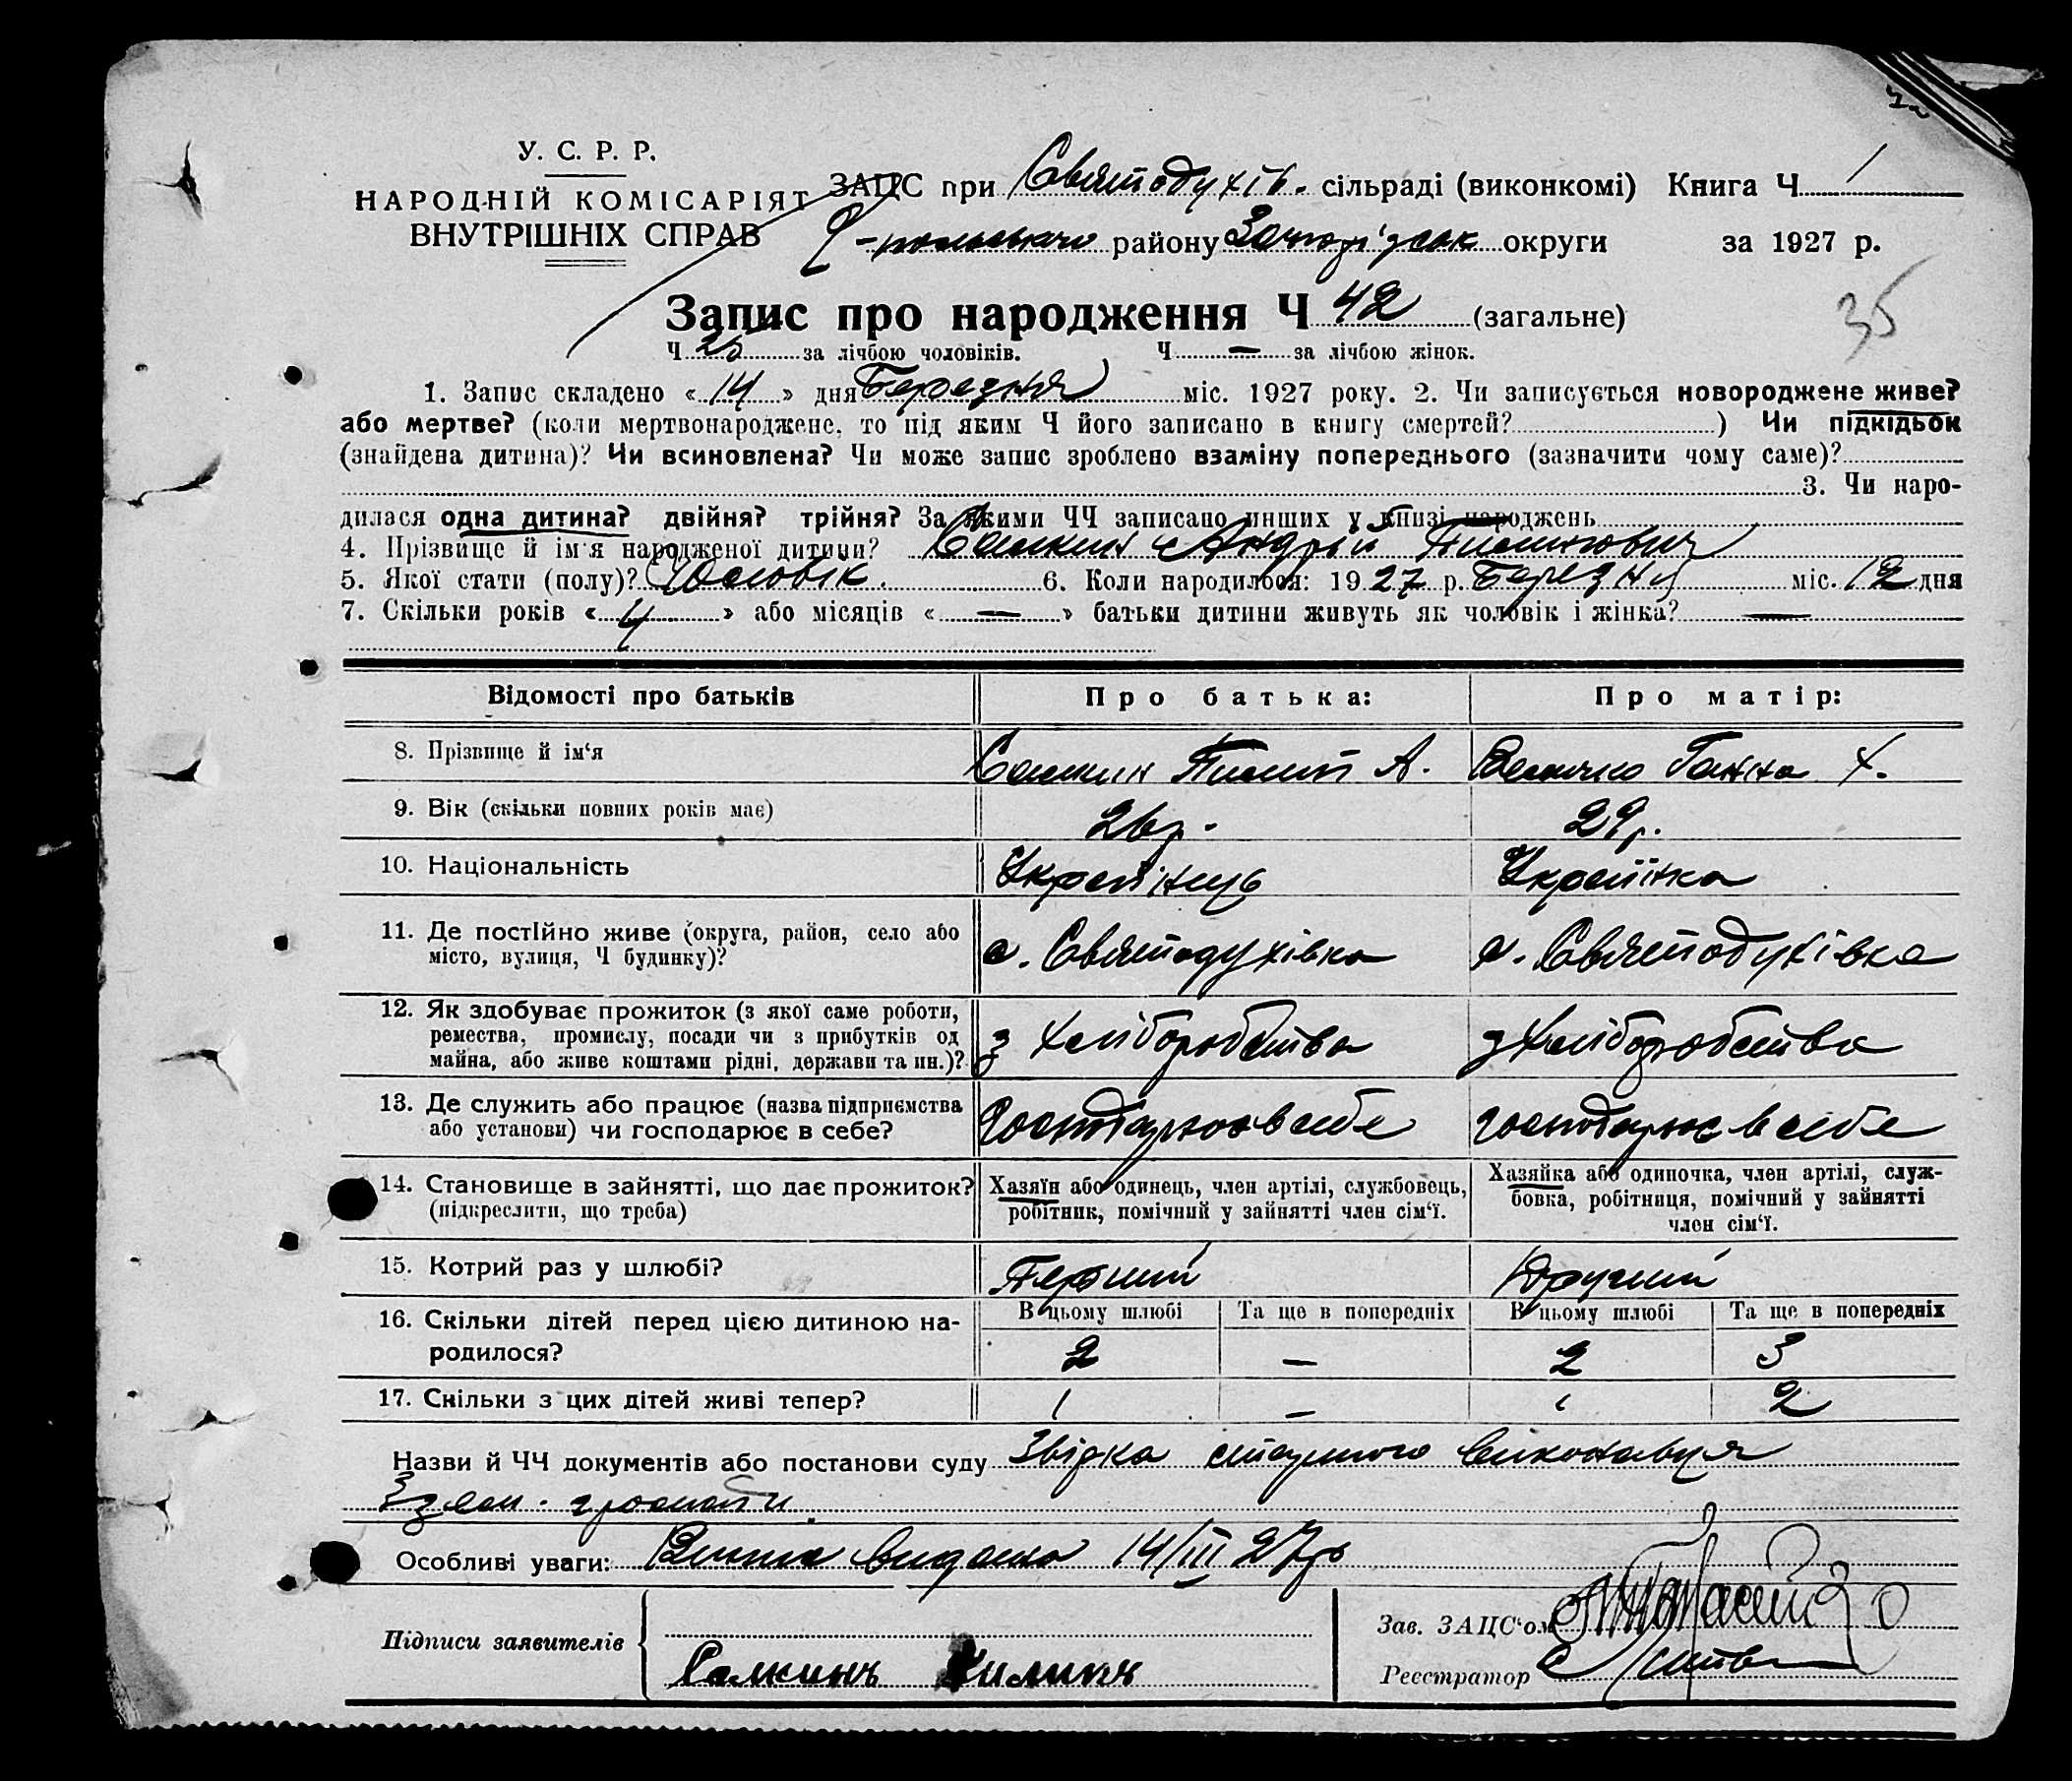 У. С. Р. Р.
НАРОДНІЙ КОМІСАРІЯТ
ВНУТРІШНІХ СПРАВ
ЗАЦС при Святодухів. сільраді (виконкомі) Книга Ч. 1
району Запоріжськ округи за 1927 р.
Запис про народження Ч 42 (загальне)
35
Ч 25 за лічбою чоловіків. Ч — за лічбою жінок.
1. Запис складено «14» дня Березня міс. 1927 року. 2. Чи записується новороджене живе?
або мертве? (коли мертвонароджене, то під яким Ч його записано в книгу смертей?) Чи підкідьок
(знайдена дитина)? Чи всиновлена? Чи може запис зроблено взаміну попереднього (зазначити чому саме)?
3. Чи наро-
дилася одна дитина? двійня? трійня? За якими ЧЧ записано инших у книзі народжень
4. Прізвище й ім'я народженої дитини? Салкин Андрій Пилипович
5. Якої стати (полу)? Чоловік. 6. Коли народилося: 1927 р. Березня міс. 12 дня
7. Скільки років «4» або місяців «—» батьки дитини живуть як чоловік і жінка? —
Відомості про батьків Про батька: Про матір:
8. Прізвище й ім'я Салкин Пилип А. Величко Ганна Х.
9. Вік (скільки повних років має) 26 р. 29 р.
10. Національність Українець Українка
11. Де постійно живе (округа, район, село або
місто, вулиця, Ч будинку)? с. Святодухівка с. Святодухівка
12. Як здобуває прожиток (з якої саме роботи,
ремества, промислу, посади чи з прибутків од
майна, або живе коштами рідні, держави та ин.)? з Хліборобства з Хліборобства
13. Де служить або працює (назва підприємства
або установи) чи господарює в себе? Господарює в себе Господарює в себе
14. Становище в зайнятті, що дає прожиток?
(підкреслити, що треба)
Хазяїн або одинець, член артілі, службовець,
робітник, помічний у зайнятті член сім'ї.
Хазяйка або одиночка, член артілі, служ-
бовка, робітниця, помічний у зайнятті
член сім'ї.
15. Котрий раз у шлюбі? Перший Другий
16. Скільки дітей перед цією дитиною на-
родилося?
В цьому шлюбі Та ще в попередніх В цьому шлюбі Та ще в попередніх
2 — 2 3
17. Скільки з цих дітей живі тепер? 1 — 1 2
Назви й ЧЧ документів або постанови суду Звідка старшого Виконавця
З зем. громади
Особливі уваги: Випис видано 14/III 27 р
Підписи заявителів
Салкинъ Пилипъ
Зав. ЗАЦС'ом
Реєстратор